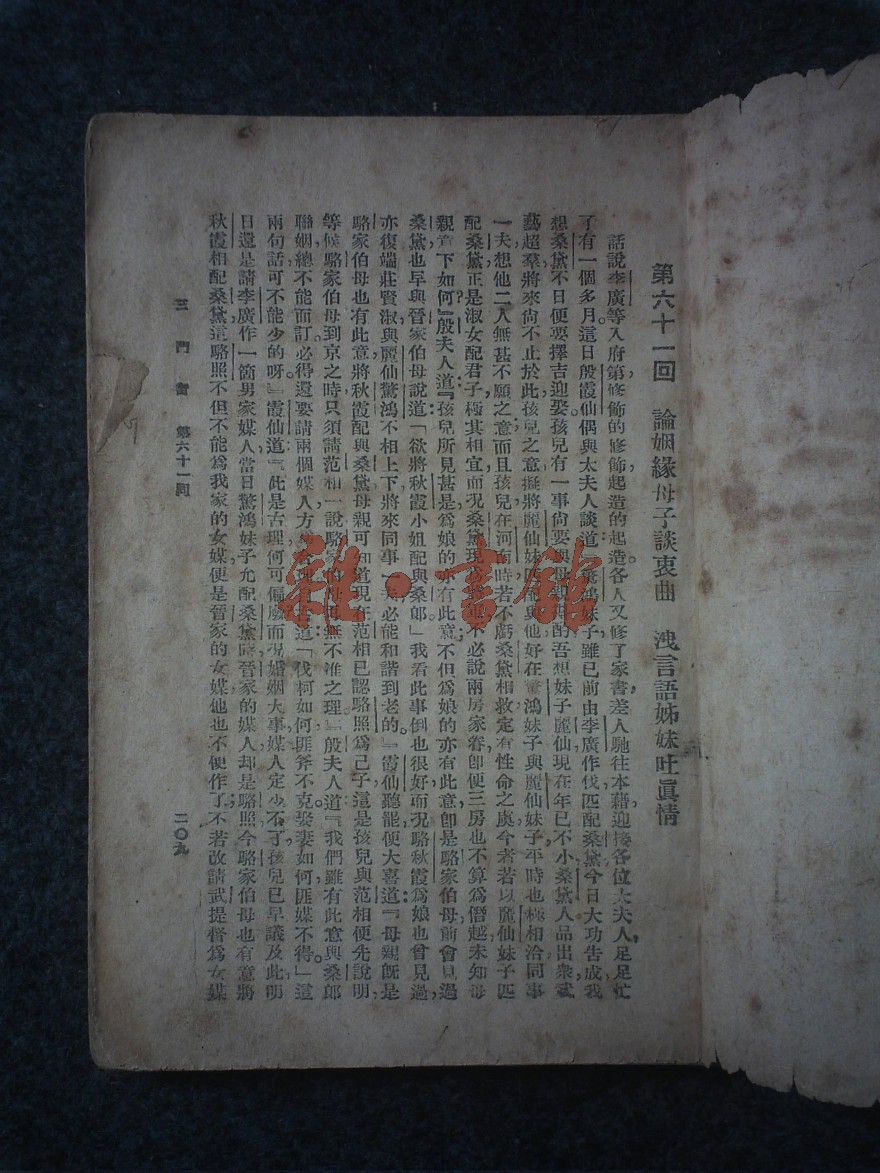 第六十一回 論姻緣母子談衷曲 洩言語姊妹吐眞情
話說李廣等入府第修飾的修飾起造的起造。各人又修了家書差人馳往本藉迎接各位太夫人足足忙
了有一個多月。這日殷霞仙偶與太夫人談道『驚鴻妹子雖已前由李廣作伐匹配桑黛今日大功告成我
想桑黛不日便要擇吉迎娶孩兒有一事尙要與母親斟酌吾想妹子麗仙現在年已不小桑黛人品出衆武
藝超羣將來尙不止於此孩兒之意擬將麗仙妹匹配與他好在驚鴻妹子與麗仙妹子平時也極相洽同事
一夫想他二人無甚不願之意而且孩兒在河南時若不虧桑黛相救定有性命之虞今者若以麗仙妹子匹
配桑黛正是淑女配君子極其相宜而況桑黛現不必說兩房家眷卽便三房也不算爲僭越未知母
親意下如何』殷夫人道『孩兒所見甚是爲娘的亦有此意不但爲娘的亦有此意卽是駱家伯母前會見過
桑黛也早與晉家伯母說道「欲將秋霞小姐配與桑郞」我看此事倒也很好而況駱秋霞爲娘也曾見過
亦復端莊賢淑與麗仙驚鴻不相上下將來同事一夫必能和諧到老的』霞仙聽罷便大喜道『母親旣是
駱家伯母也有此意將秋霞配與桑黛母親可知道現在范相已認駱照爲己子這是孩兒與范相便先說明
等候駱家伯母到京之時只須請范相一說駱家伯母再無不准之理』殷夫人道『我們雖有此意與桑郞
聯姻總不能而訂必得還要請兩個媒人方道「伐柯如何匪斧不克。娶妻如何匪媒不得。」這
兩句話可不能少的呀』霞仙道『此是古理何可偏廢而況婚姻大事媒人定少不了孩兒已早議及此明
日還是請李廣作一箇男家媒人當日驚鴻妹子允配桑黛時晉家的媒人却是駱照今駱家伯母也有意將
秋霞相配桑黛這駱照不但不能爲我家的女媒便是晉家的女媒他也不便作了不若改請武提督爲女媒
三門街 第六十一回 二〇九
雜·書館